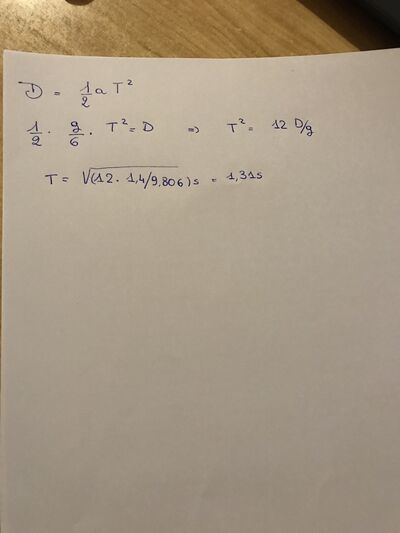 D = 1/2 a T²
1/2 · g/6 · T² = D => T² = 12 D/g
T = √(12 · 1,4/9,806) s = 1,31s